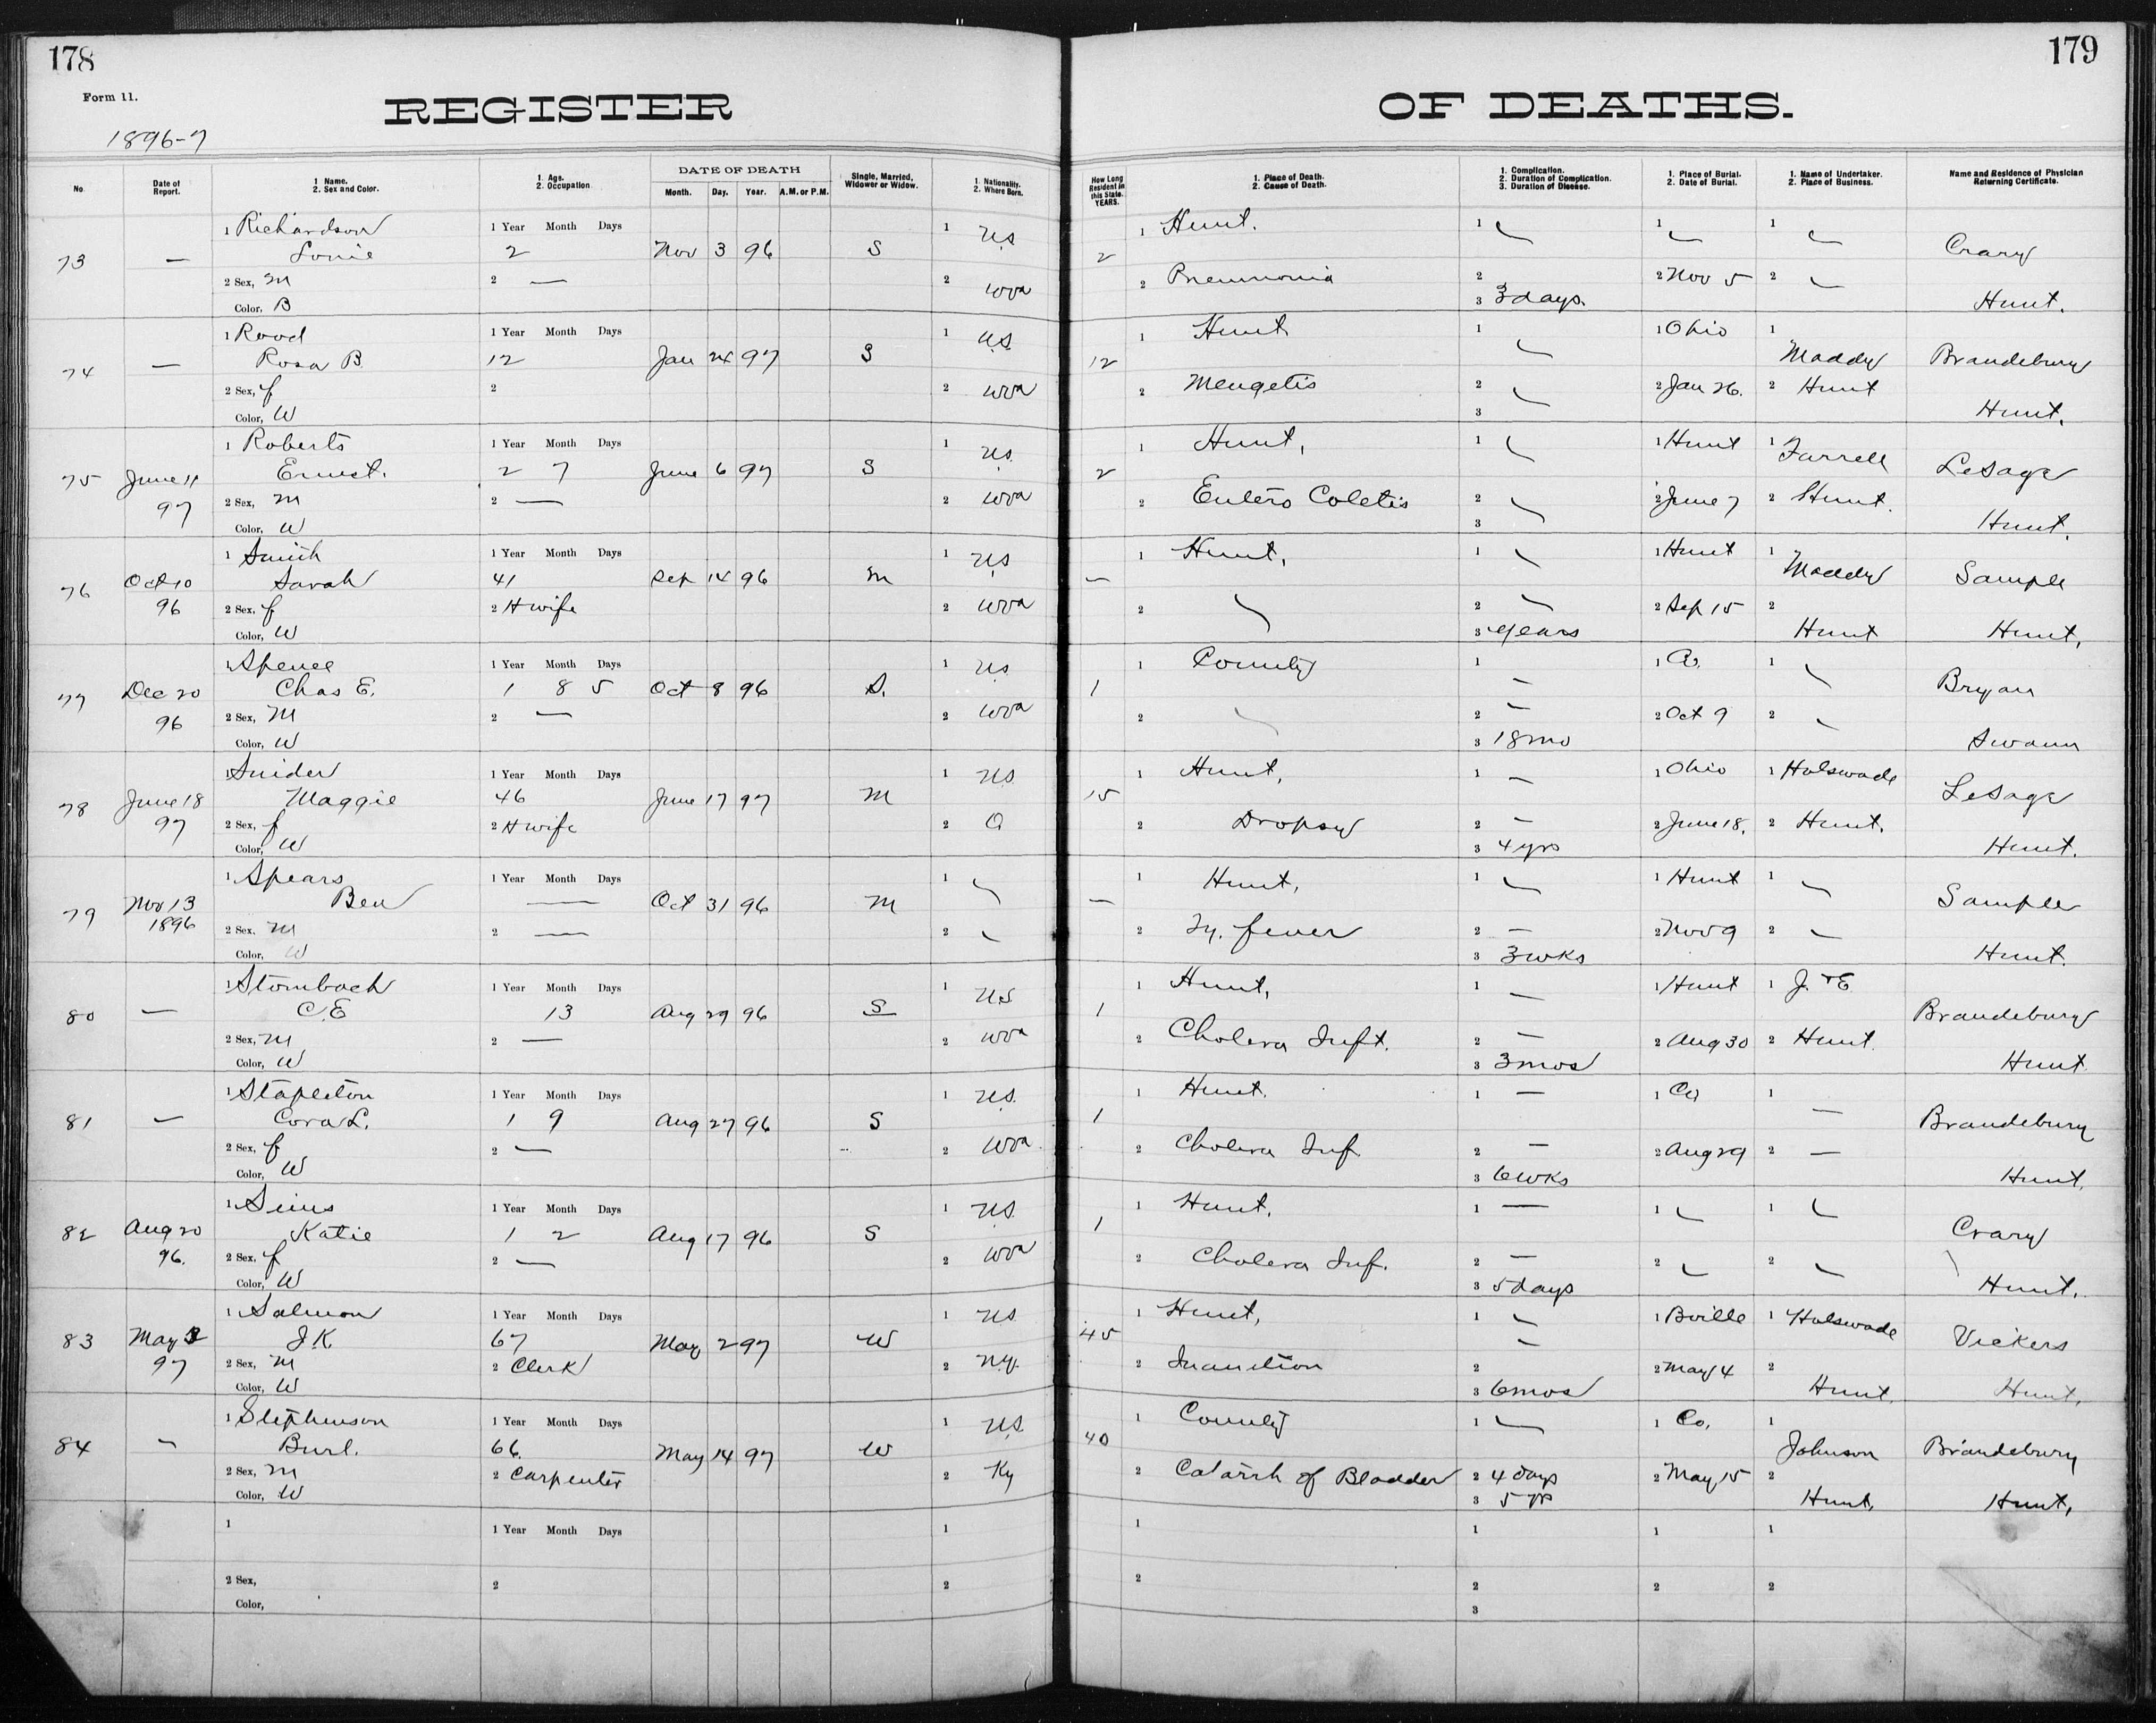 178
179
Form 11.
REGISTER OF DEATHS.
1896-7
No.
Date of Report.
1 Name. 2. Sex and Color.
1. Age. 2. Occupation
DATE OF DEATH
Month. Day. Year. A.M. or P.M.
Single, Married, Widower or Widow.
1. Nationality. 2. Where Born.
How Long Resident in this State. YEARS.
1. Place of Death. 2. Cause of Death.
1. Complication. 2. Duration of Complication. 3. Duration of Disease.
1. Place of Burial. 2. Date of Burial.
1. Name of Undertaker. 2. Place of Business.
Name and Residence of Physician Returning Certificate.
1 Richardson 1 Year Month Days 1 U.S 1 Hunt. 1 — 1 — 1 —
73 — 2 Nov 3 96 S 2 Crary
2 Sex, M 2 — 2 Wva 2 Pneumonia 2 2 Nov 5 2 —
Color, B 3 3 days. Hunt.
1 Rood 1 Year Month Days 1 U.S. 1 Hunt 1 — 1 Ohio 1
74 — Rosa B. 12 Jan 24 97 S 12 Maddy Brandebury
2 Sex, f 2 2 Wva 2 Mengetis 2 — 2 Jan 26. 2 Hunt
Color, W 3 Hunt.
1 Roberts 1 Year Month Days 1 U.S. 1 Hunt, 1 — 1 Hunt 1 Farrell
75 June 11 97 Ernest. 2 7 June 6 97 S 2 LeSage
2 Sex, M 2 — 2 Wva 2 Entero Coletis 2 — 2 June 7 2 Hunt.
Color, W 3 Hunt.
1 Smith 1 Year Month Days 1 U.S 1 Hunt, 1 — 1 Hunt 1
76 Oct 10 96 Sarah 41 Sep 14 96 M — Maddy Sample
2 Sex, f 2 H wife 2 Wva 2 — 2 — 2 Sep 15 2
Color, W 3 years Hunt Hunt,
1 Spence 1 Year Month Days 1 U.S. 1 County 1 — 1 Co. 1 —
77 Dec 20 96 Chas E. 1 8 5 Oct 8 96 S. 1 Bryan
2 Sex, M 2 — 2 Wva 2 — 2 — 2 Oct 9 2 —
Color, W 3 18 mo Swann
1 Snider 1 Year Month Days 1 U.S. 1 Hunt, 1 — 1 Ohio 1 Holswade
78 June 18 97 Maggie 46 June 17 97 M 15 LeSage
2 Sex, f 2 H wife 2 O 2 Dropsy 2 — 2 June 18. 2 Hunt.
Color, W 3 4 yrs Hunt.
1 Spears 1 Year Month Days 1 — 1 Hunt, 1 — 1 Hunt 1 —
79 Nov 13 1896 Ben — Oct 31 96 M — Sample
2 Sex. M 2 — 2 — 2 Ty. fever 2 — 2 Nov 9 2 —
Color, W 3 3 wks Hunt.
1 Stombach 1 Year Month Days 1 U.S 1 Hunt, 1 — 1 Hunt 1 J. & E
80 — C. E 13 Aug 29 96 S 1 Brandebury
2 Sex, M 2 — 2 Wva 2 Cholera Inft. 2 — 2 Aug 30 2 Hunt.
Color, W 3 3 mos Hunt
1 Stapleton 1 Year Month Days 1 U.S. 1 Hunt. 1 — 1 Co 1
81 — Cora L. 1 9 Aug 27 96 S 1 — Brandebury
2 Sex, f 2 — 2 Wva 2 Cholera Inf 2 — 2 Aug 29 2 —
Color, W 3 6 wks Hunt,
1 Sims 1 Year Month Days 1 U.S. 1 Hunt, 1 — 1 — 1 —
82 Aug 20 96. Katie 1 2 Aug 17 96 S 1 Crary
2 Sex, f 2 — 2 Wva 2 Cholera Inf. 2 — 2 — 2 —
Color, W 3 5 days Hunt.
1 Salmon 1 Year Month Days 1 U.S 1 Hunt, 1 — 1 Bville 1 Holswade
83 May 3 97 J. K. 67 May 2 97 W 45 — Vickers
2 Sex, M 2 Clerk 2 N.Y. 2 Inanition 2 2 May 4 2
Color, W 3 6 mos Hunt. Hunt,
1 Stephenson 1 Year Month Days 1 U.S 1 County 1 — 1 Co. 1
84 — Burl. 66. May 14 97 W 40 Johnson Brandebury
2 Sex, M 2 Carpenter 2 Ky 2 Catarrh of Bladder 2 4 days 2 May 15 2
Color, W 3 5 yrs Hunt, Hunt,
1 1 Year Month Days 1 1 1 1 1
2 Sex, 2 2 2 2 2 2
Color, 3